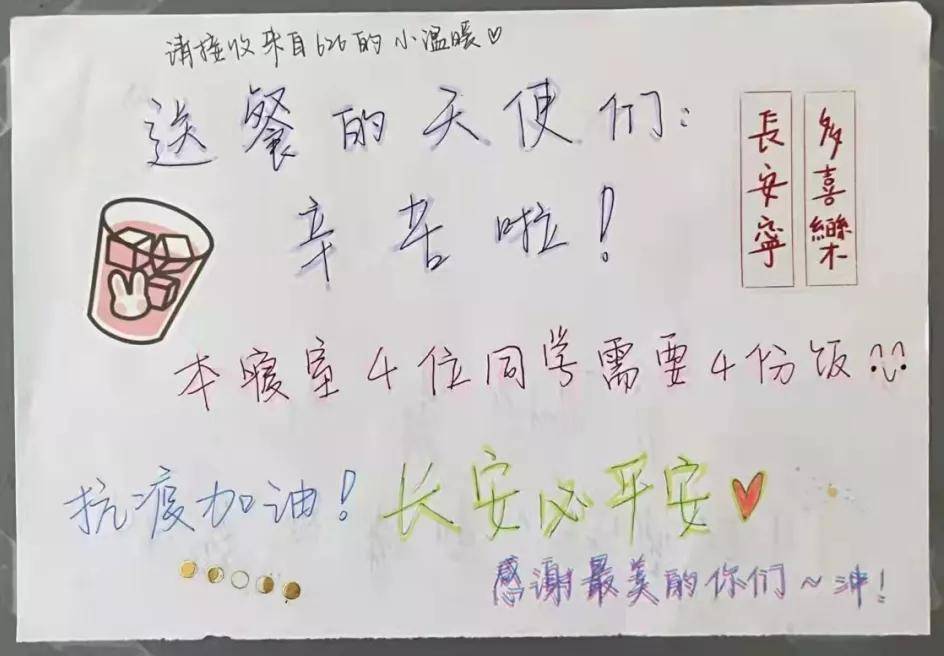 请接收来自626的小温暖♡
送餐的天使们:
辛苦啦!
長安寧
多喜樂
本寝室4位同学需要4份饭
抗疫加油!
长安必平安
感谢最美的你们~冲!